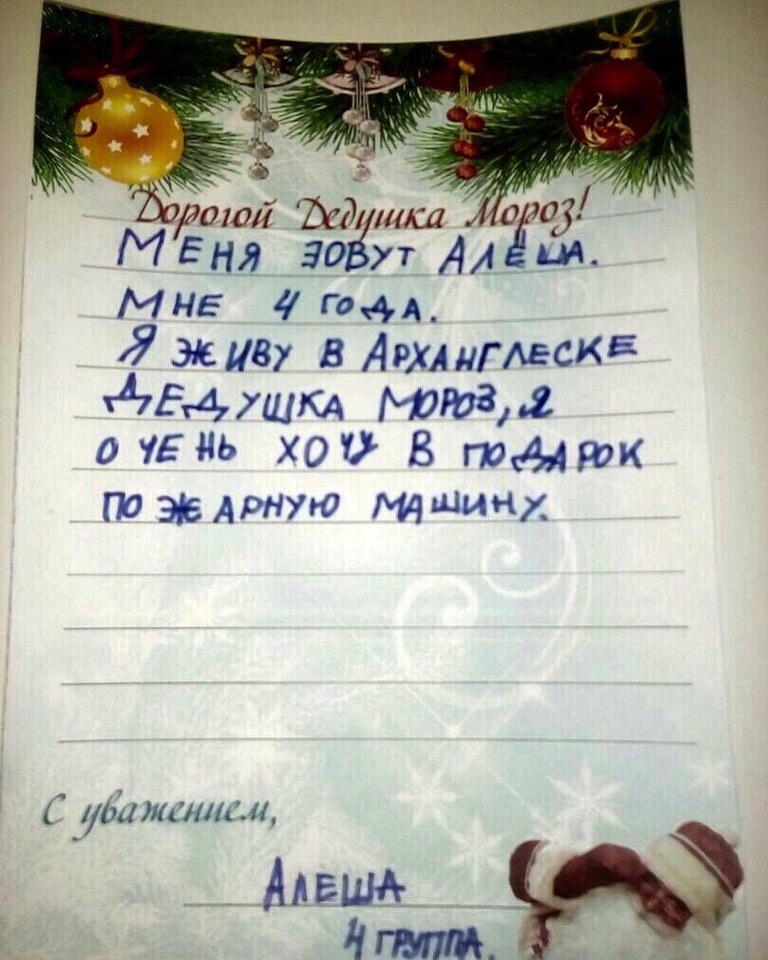 Дорогой Дедушка Мороз!
МЕНЯ ЗОВУТ АЛЁША.
МНЕ 4 ГОДА.
Я ЖИВУ В АРХАНГЛЕСКЕ
ДЕДУШКА МОРОЗ, Я
ОЧЕНЬ ХОЧУ В ПОДАРОК
ПОЖАРНУЮ МАШИНУ.
С уважением,
АЛЕША
4 ГРУППА.